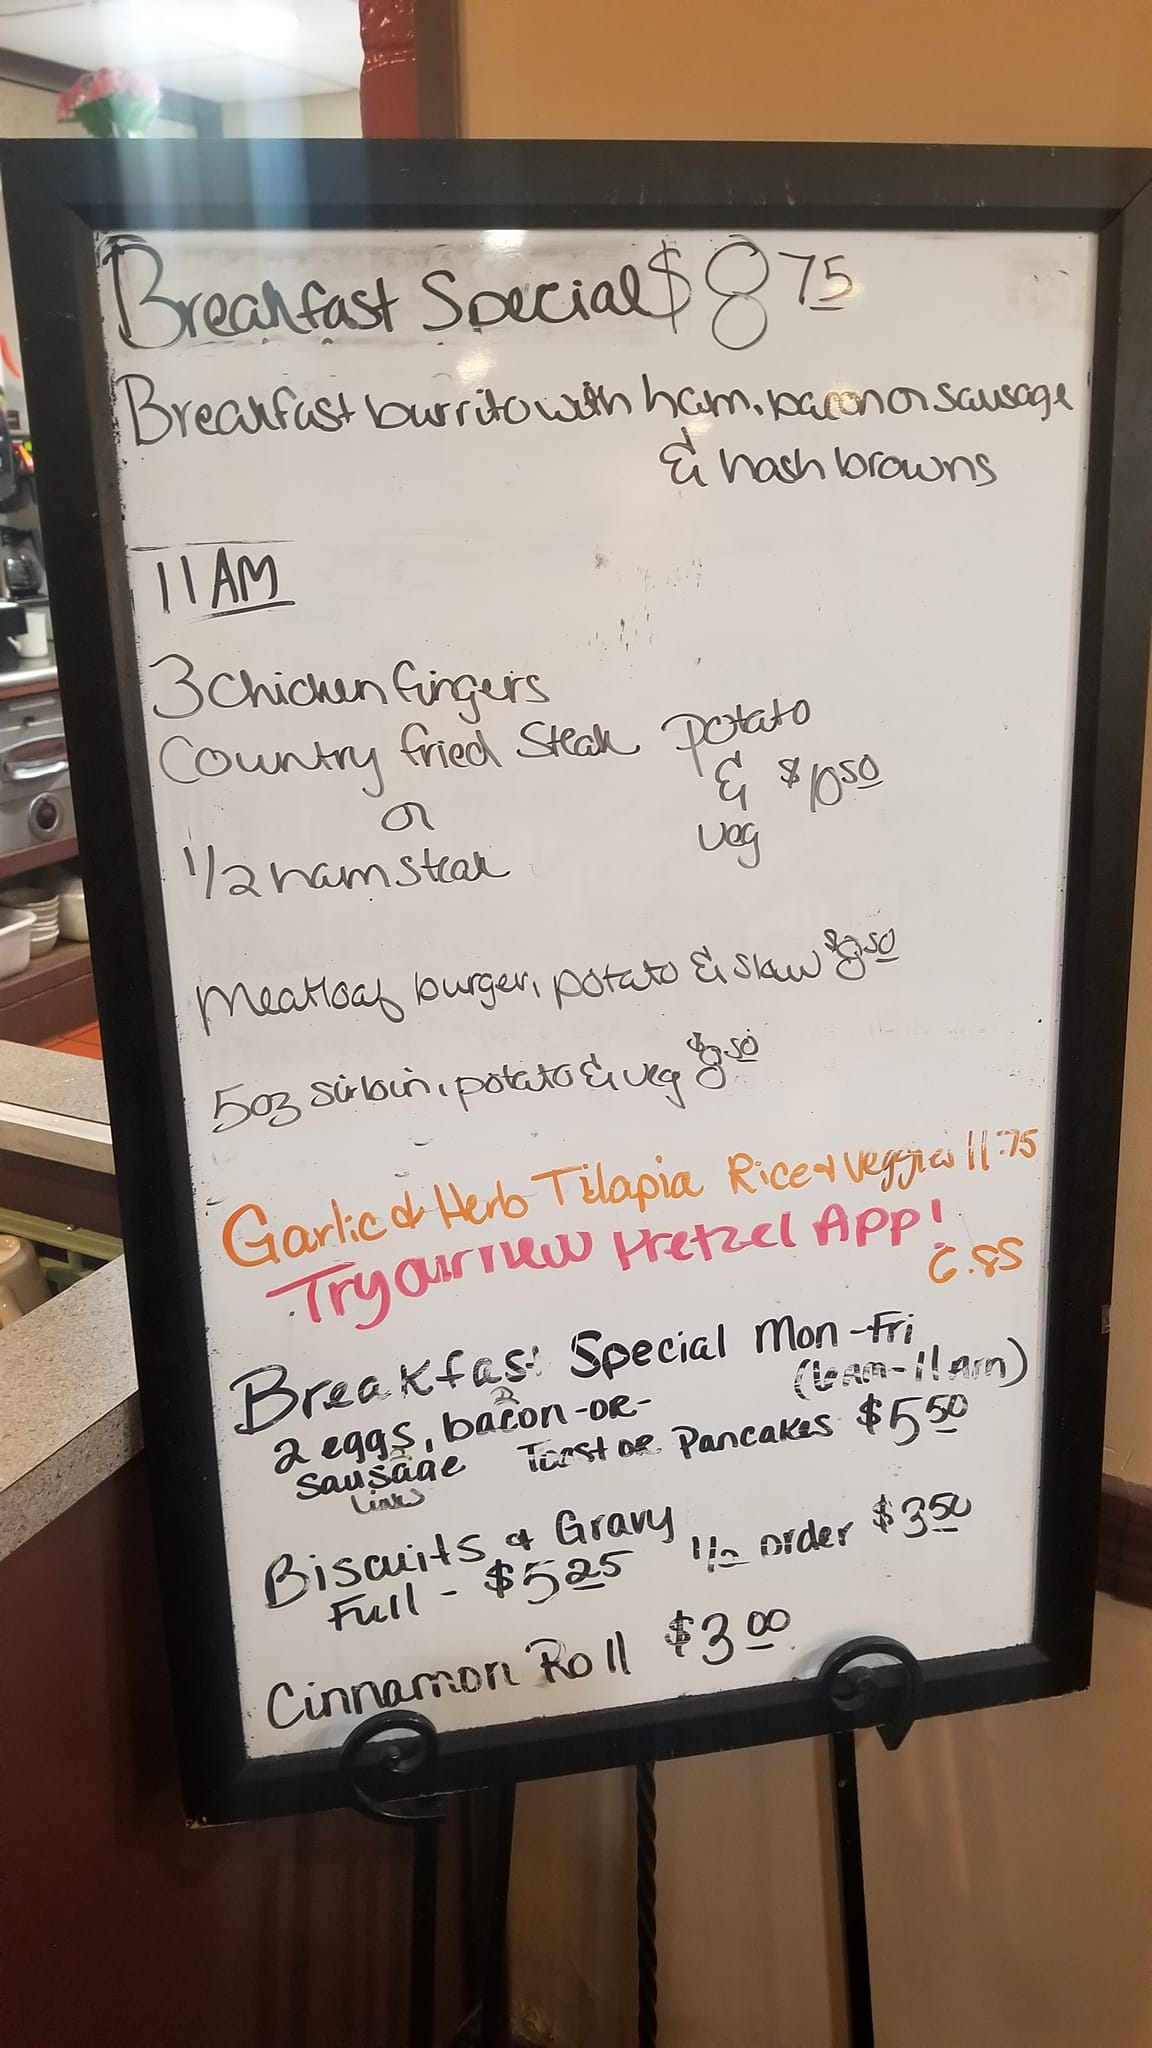 Breakfast Special $8 75
Breakfast burrito with ham, bacon or sausage
& hash browns
11 AM
3 chicken fingers
Country fried steak potato
or & $10 50
1/2 ham steak veg
meatloaf burger, potato & slaw $8 50
5oz sirloin, potato & veg $8 50
Garlic & Herb Tilapia Rice & Veggies 11.75
Try our new Pretzel App!
6.85
Breakfast Special Mon-Fri
(6am-11am)
2 eggs, 2 bacon -or-
2 sausage Toast or Pancakes $5 50
links
Biscuits & Gravy
Full - $5 25 1/2 order $3 50
Cinnamon Roll $3 00